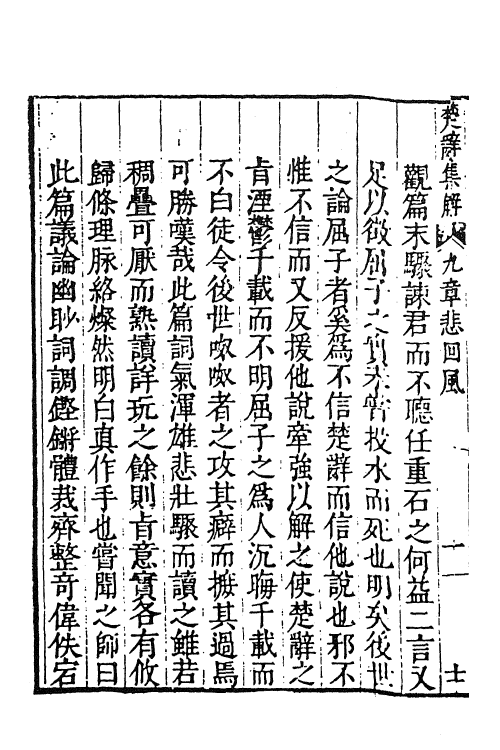 楚辭集解 九章悲回風 十一
觀篇末驟諫君而不聽任重石之何益二言又
足以徵屈子之實未嘗投水而死也明矣後世
之論屈子者奚爲不信楚辭而信他說也邪不
惟不信而又反援他說牽強以解之使楚辭之
㫖湮鬱千載而不明屈子之爲人沉晦千載而
不白徒令後世呶呶者之攻其癖而摭其過焉
可勝嘆哉此篇詞氣渾雄悲壯驟而讀之雖若
稠疊可厭而熟讀詳玩之餘則㫖意實各有攸
歸條理脉絡燦然明白真作手也嘗聞之師曰
此篇議論幽眇詞調鏗鏘體裁齊整竒偉佚宕